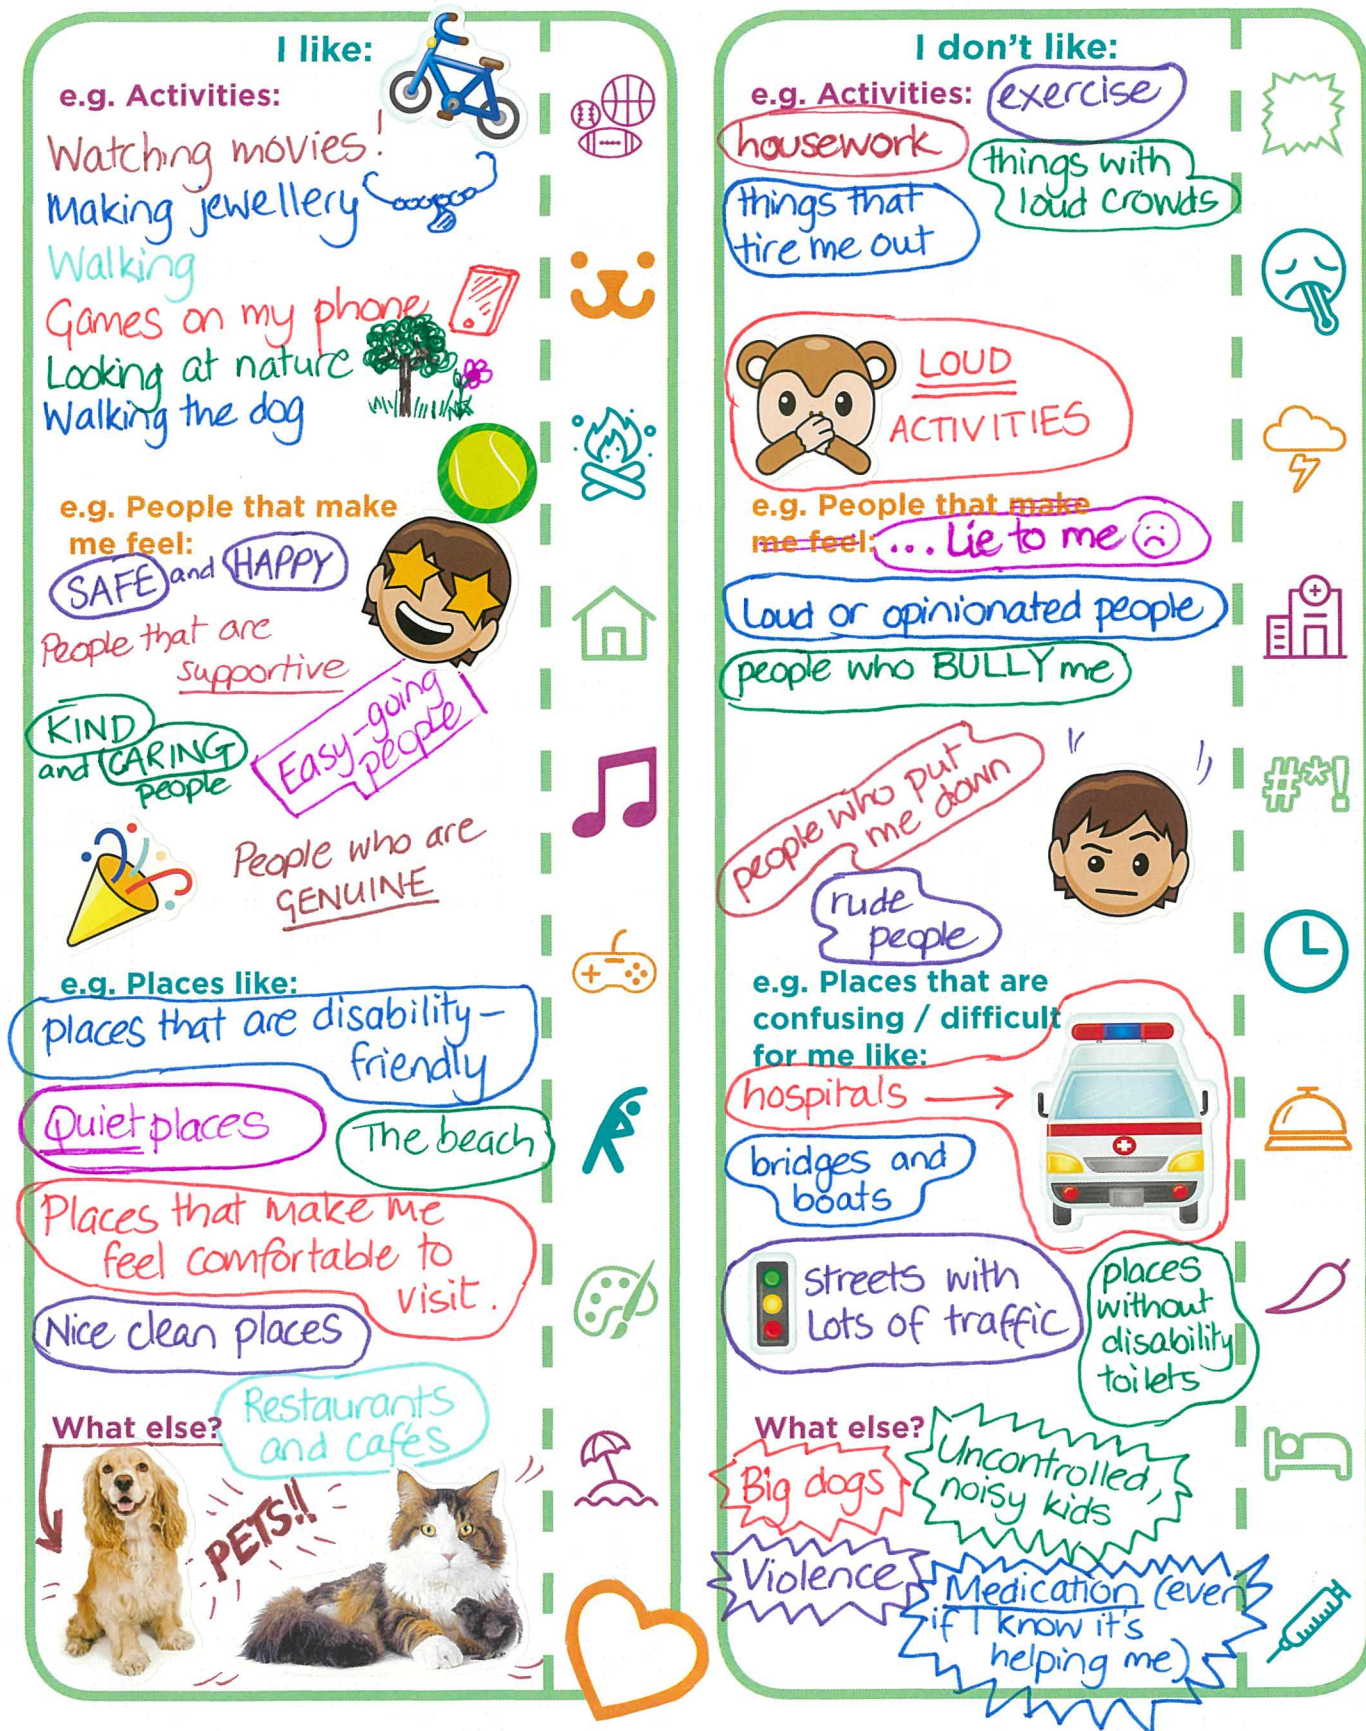 I like:
e.g. Activities:
Watching movies!
Making jewellery
Walking
Games on my phone
Looking at nature
Walking the dog
e.g. People that make
me feel:
SAFE and HAPPY
People that are
supportive
KIND
and CARING
people
Easy-going
people
People who are
GENUINE
e.g. Places like:
places that are disability-
friendly
Quiet places
The beach
Places that make me
feel comfortable to
visit.
Nice clean places
Restaurants
and cafés
What else?
PETS!!
I don't like:
e.g. Activities:
exercise
housework
things with
loud crowds
things that
tire me out
LOUD
ACTIVITIES
e.g. People that make
me feel: ... Lie to me
Loud or opinionated people
people who BULLY me
people who put
me down
rude
people
e.g. Places that are
confusing / difficult
for me like:
hospitals
bridges and
boats
streets with
Lots of traffic
places
without
disability
toilets
What else?
Big dogs
Uncontrolled,
noisy kids
Violence
Medication (even
if I know it's
helping me)
#*!